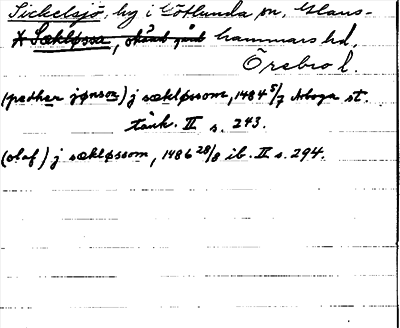 Sickelsjö, by i Götlunda sn, Glans-
hammars hd,
Örebro l.
(pedher jønson) j sækløssom, 1484 5/7 Arboga st.
tänk. II s. 243.
(olaf) j sækløssom, 1486 28/8 ib. II s. 294.